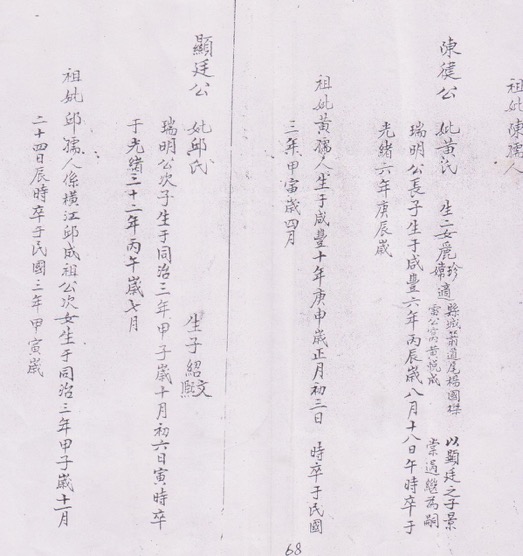 祖妣陳孺人
陳健公 妣黃氏 生二女麗珍嬌適縣城箭道尾楊國琛雷公窩黃悅成 以顯廷之子景棠過繼為嗣
瑞明公長子生于咸豐六年丙辰歲八月十八日午時卒于
光緒六年庚辰歲
祖妣黃孺人生于咸豐十年庚申歲正月初三日 時卒于民國
三年甲寅歲四月
顯廷公 妣邱氏 生子紹文熙
瑞明公次子生于同治三年甲子歲十月初六日寅時卒
于光緒三十二年丙午歲七月
祖妣邱孺人係橫江邱成祖公次女生于同治三年甲子歲十一月
二十四日辰時卒于民國三年甲寅歲
68